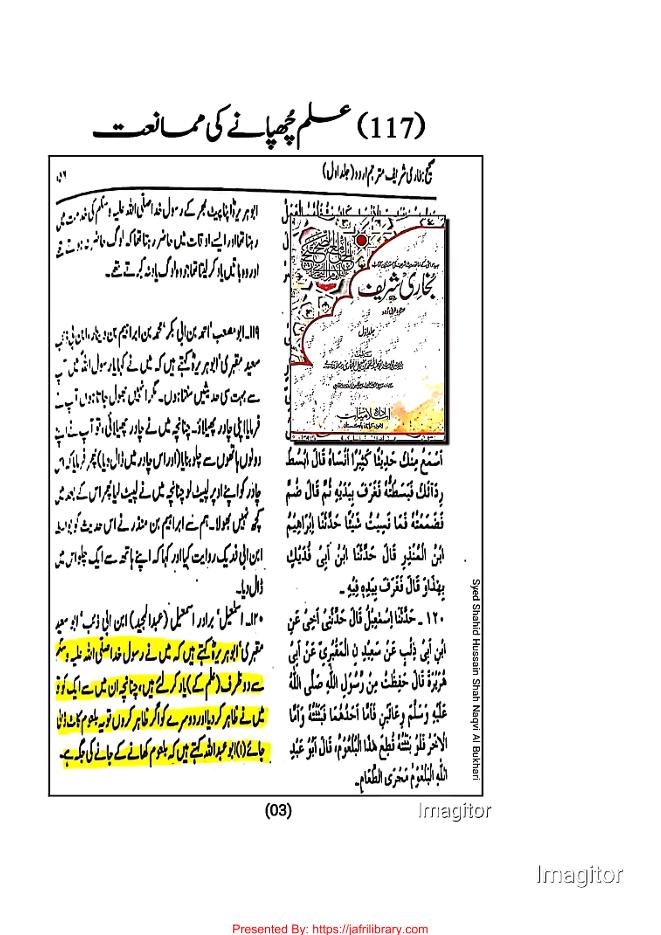 (117) علم چُھپانے کی ممانعت
صحیح بخاری شریف مترجم اردو (جلد اول)
ابوہریرہؓ اپنا پیٹ بھر کے رسول خدا صلی اللہ علیہ وسلم کی خدمت میں
رہتا تھا اور ایسے اوقات میں حاضر رہتا تھا کہ لوگ حاضر نہ ہوتے تھے
اور وہ باتیں یاد کر لیتا تھا جو وہ لوگ یاد نہ کرتے تھے۔
۱۱۹۔ ابو مصعب، احمد بن ابی بکر، محمد بن ابراہیم بن دینار، ابن ابی ذئب
سعید مقبری، ابوہریرہؓ کہتے ہیں کہ میں نے کہا یا رسول اللہ میں آپ
سے بہت سی حدیثیں سنتا ہوں۔ مگر انہیں بھول جاتا ہوں آپ نے
فرمایا اپنی چادر پھیلاؤ۔ چنانچہ میں نے چادر پھیلائی، تو آپ نے اپنے
دونوں ہاتھوں سے چلو بنایا (اور اس چادر میں ڈال دیا) پھر فرمایا کہ اس
چادر کو اپنے اوپر لپیٹ لو چنانچہ میں نے لپیٹ لیا پھر اس کے بعد میں
کچھ نہیں بھولا۔ ہم سے ابراہیم بن منذر نے اس حدیث کو بواسطہ
ابن ابی فدیک روایت کیا اور کہا کہ اپنے ہاتھ سے ایک چلو اس میں
ڈال دیا۔
۱۲۰۔ اسمٰعیل، برادر اسمٰعیل (عبدالحمید) ابن ابی ذئب، ابو سعید
مقبری، ابوہریرہؓ کہتے ہیں کہ میں نے رسول خدا صلی اللہ علیہ وسلم
سے دو ظرف (علم کے) یاد کر لئے ہیں، چنانچہ ان میں سے ایک کو تو
میں نے ظاہر کر دیا اور دوسرے کو اگر ظاہر کروں تو یہ بلعوم کاٹ ڈالی
جائے (۱) ابو عبداللہ کہتے ہیں کہ بلعوم کھانے کے جانے کی جگہ ہے۔
بخاری شریف
جلد اول
ادارہ اسلامیات
اَسْمَعُ مِنْكَ حَدِيْثًا كَثِيْرًا اَنْسَاهُ قَالَ ابْسُطْ
رِدَآئَكَ فَبَسَطْتُّهٗ فَغَرَفَ بِيَدَيْهِ ثُمَّ قَالَ ضُمَّ
فَضَمَمْتُهٗ فَمَا نَسِيْتُ شَيْئًا حَدَّثَنَا اِبْرَاهِيْمُ
ابْنُ الْمُنْذِرِ قَالَ حَدَّثَنَا ابْنُ اَبِىْ فُدَيْكٍ
بِهٰذَا وَ قَالَ فَغَرَفَ بِيَدِهٖ فِيْهِ ۔
۱۲۰ ۔ حَدَّثَنَا اِسْمٰعِيْلُ قَالَ حَدَّثَنِىْ اَخِىْ عَنِ
ابْنِ اَبِىْ ذِئْبٍ عَنْ سَعِيْدِ نِ الْمَقْبُرِىِّ عَنْ اَبِىْ
هُرَيْرَةَ قَالَ حَفِظْتُ مِنْ رَّسُوْلِ اللّٰهِ صَلَّى اللّٰهُ
عَلَيْهِ وَسَلَّمَ وِعَائَيْنِ فَاَمَّا اَحَدُهُمَا فَبَثَثْتُهٗ وَاَمَّا
الْاٰخَرُ فَلَوْ بَثَثْتُهٗ قُطِعَ هٰذَا الْبُلْعُوْمُ، قَالَ اَبُوْ عَبْدِ
اللّٰهِ الْبُلْعُوْمُ مَجْرَى الطَّعَامِ۔
Syed Shahid Hussain Shah Naqvi Al Bukhari
(03)
Imagitor
Imagitor
Presented By: https://jafrilibrary.com